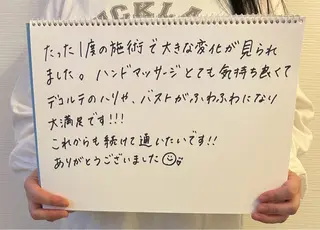 たった1度の施術で大きな変化が見られ
ました。ハンドマッサージとても気持ち良くて
デコルテのハリや、バストがふわふわになり
大満足です!!!
これからも続けて通いたいです!!
ありがとうございました